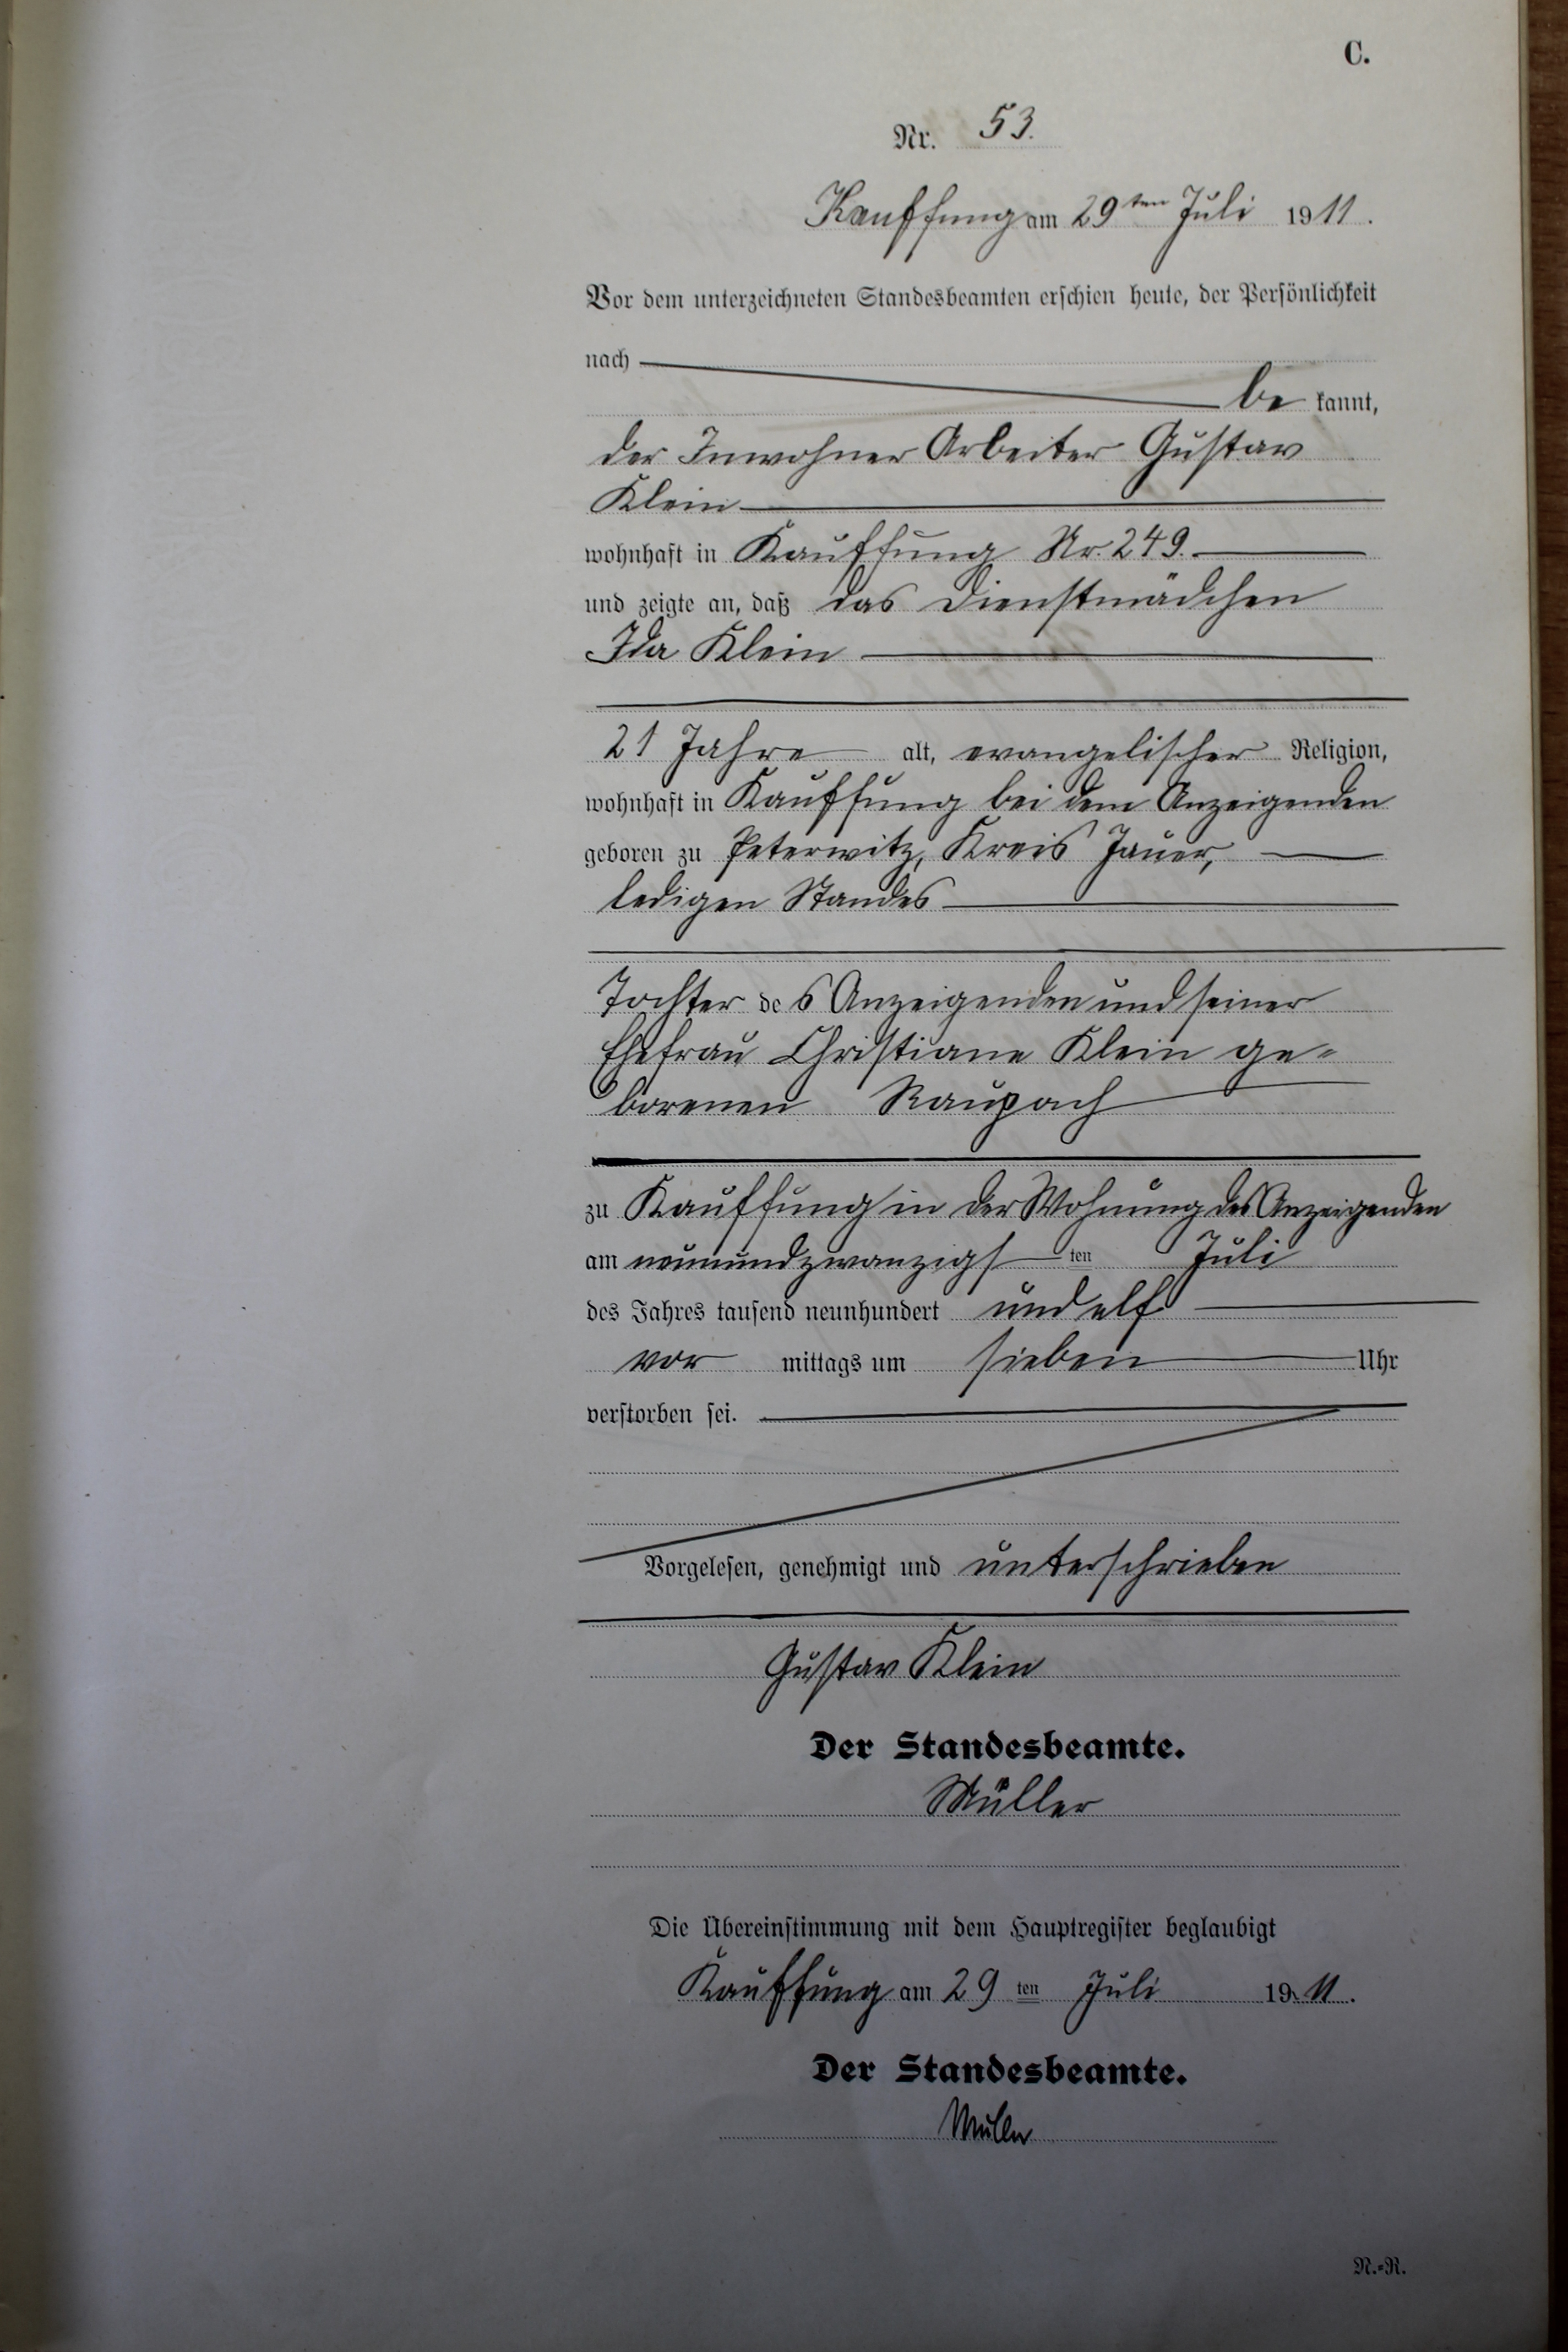 C.
Nr. 53.
Kauffung am 29ten Juli 1911.
Vor dem unterzeichneten Standesbeamten erschien heute, der Persönlichkeit
nach
be kannt,
der Inwohner Arbeiter Gustav
Klein
wohnhaft in Kauffung Nr. 249.
und zeigte an, daß das Dienstmädchen
Ida Klein
21 Jahre alt, evangelischer Religion,
wohnhaft in Kauffung bei dem Anzeigenden
geboren zu Peterwitz, Kreis Jauer,
ledigen Standes
Tochter des Anzeigenden und seiner
Ehefrau Christiane Klein ge-
borenen Raupach
zu Kauffung in der Wohnung des Anzeigenden
am neunundzwanzigsten Juli
des Jahres tausend neunhundert und elf
vor mittags um sieben Uhr
verstorben sei.
Vorgelesen, genehmigt und unterschrieben
Gustav Klein
Der Standesbeamte.
Müller
Die Übereinstimmung mit dem Hauptregister beglaubigt
Kauffung am 29 ten Juli 1911.
Der Standesbeamte.
Müller
N.-R.